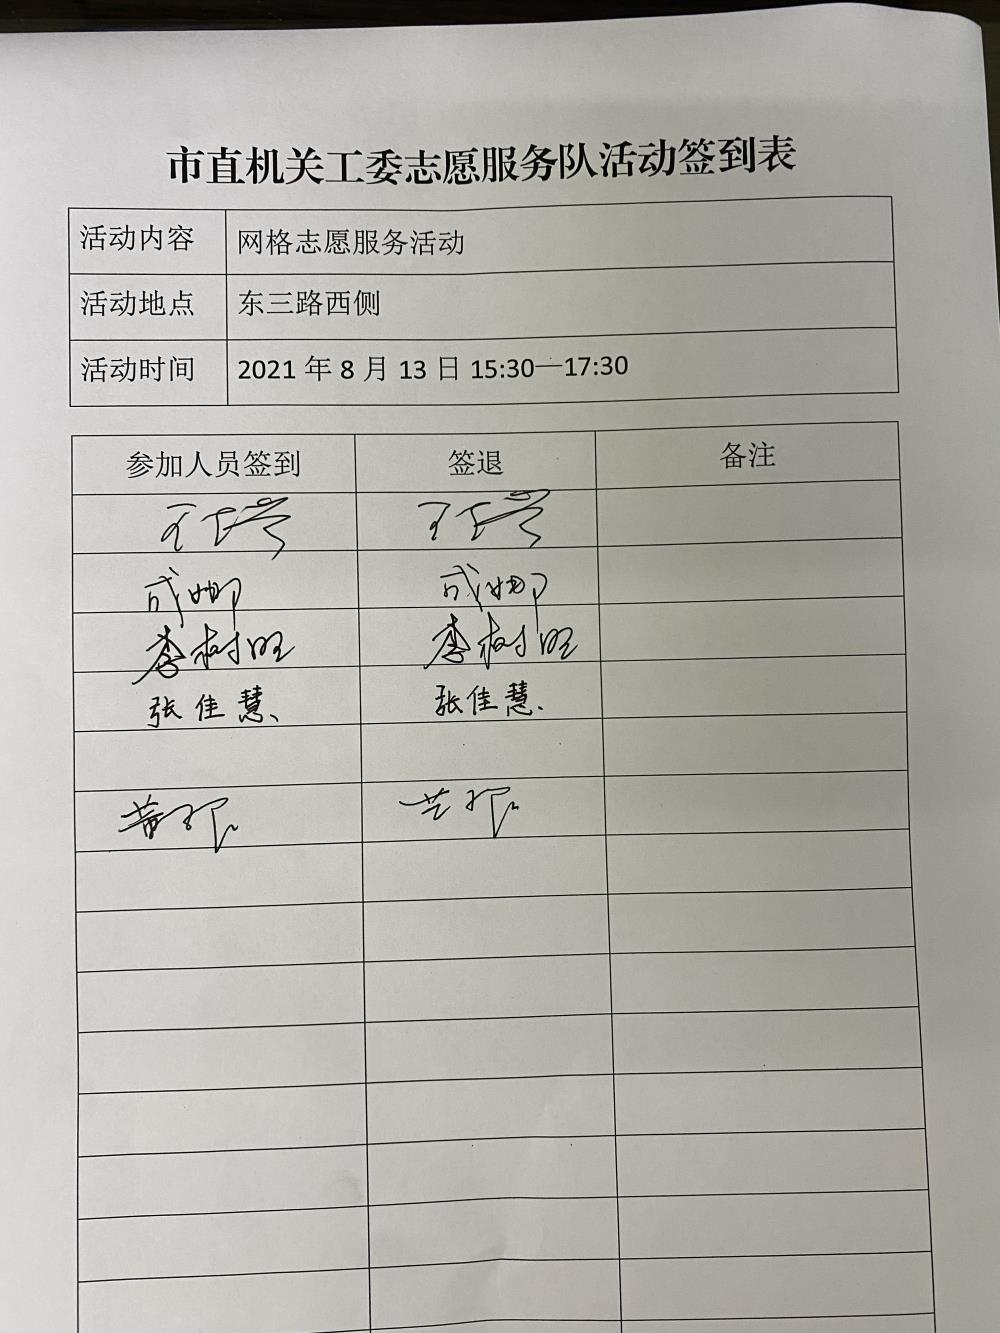 市直机关工委志愿服务队活动签到表
活动内容 网格志愿服务活动
活动地点 东三路西侧
活动时间 2021年8月13日 15:30—17:30
参加人员签到 签退 备注
成娜 成娜
李树旺 李树旺
张佳慧、 张佳慧.